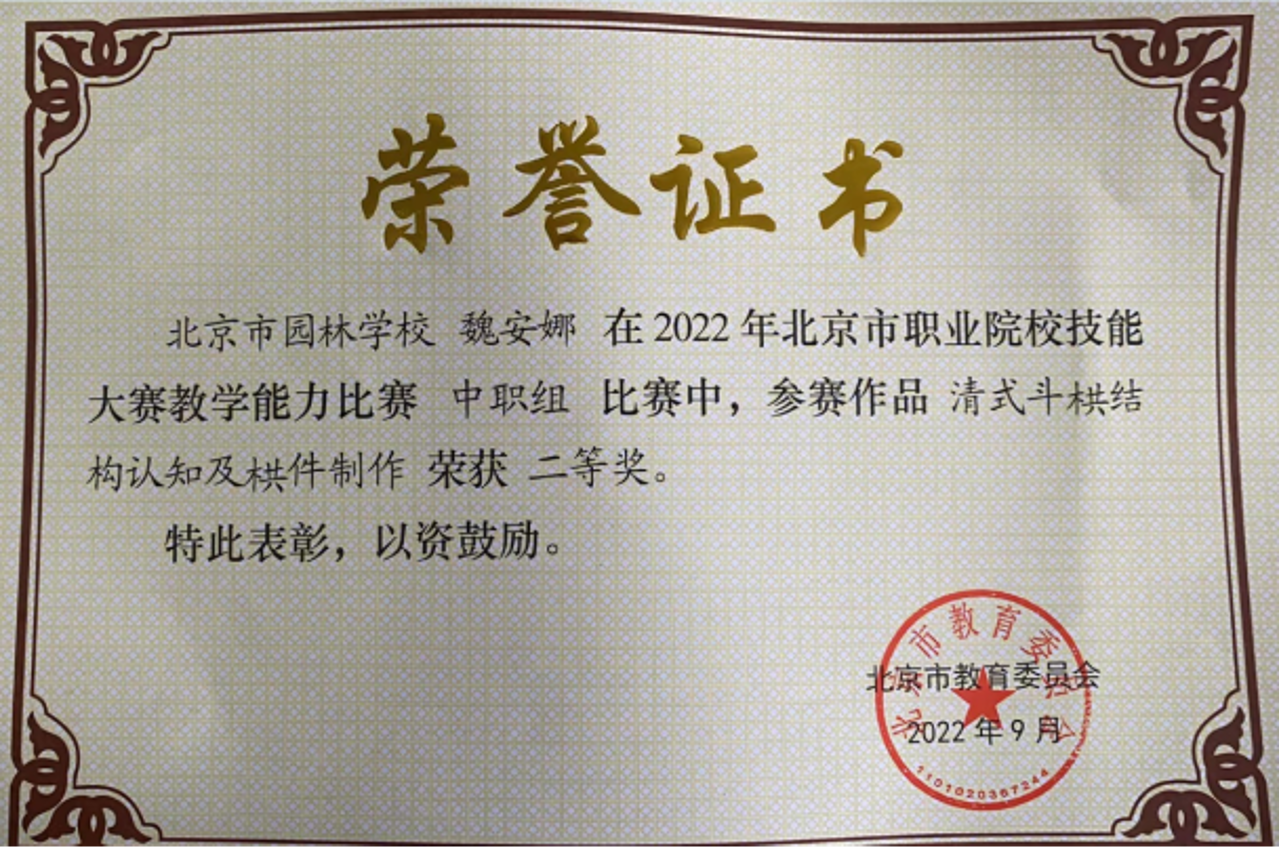 荣誉证书
北京市园林学校 魏安娜 在2022年北京市职业院校技能
大赛教学能力比赛 中职组 比赛中，参赛作品 清式斗栱结
构认知及栱件制作 荣获 二等奖。
特此表彰，以资鼓励。
北京市教育委员会
北京市教育委员会
2022年9月
1101020367244